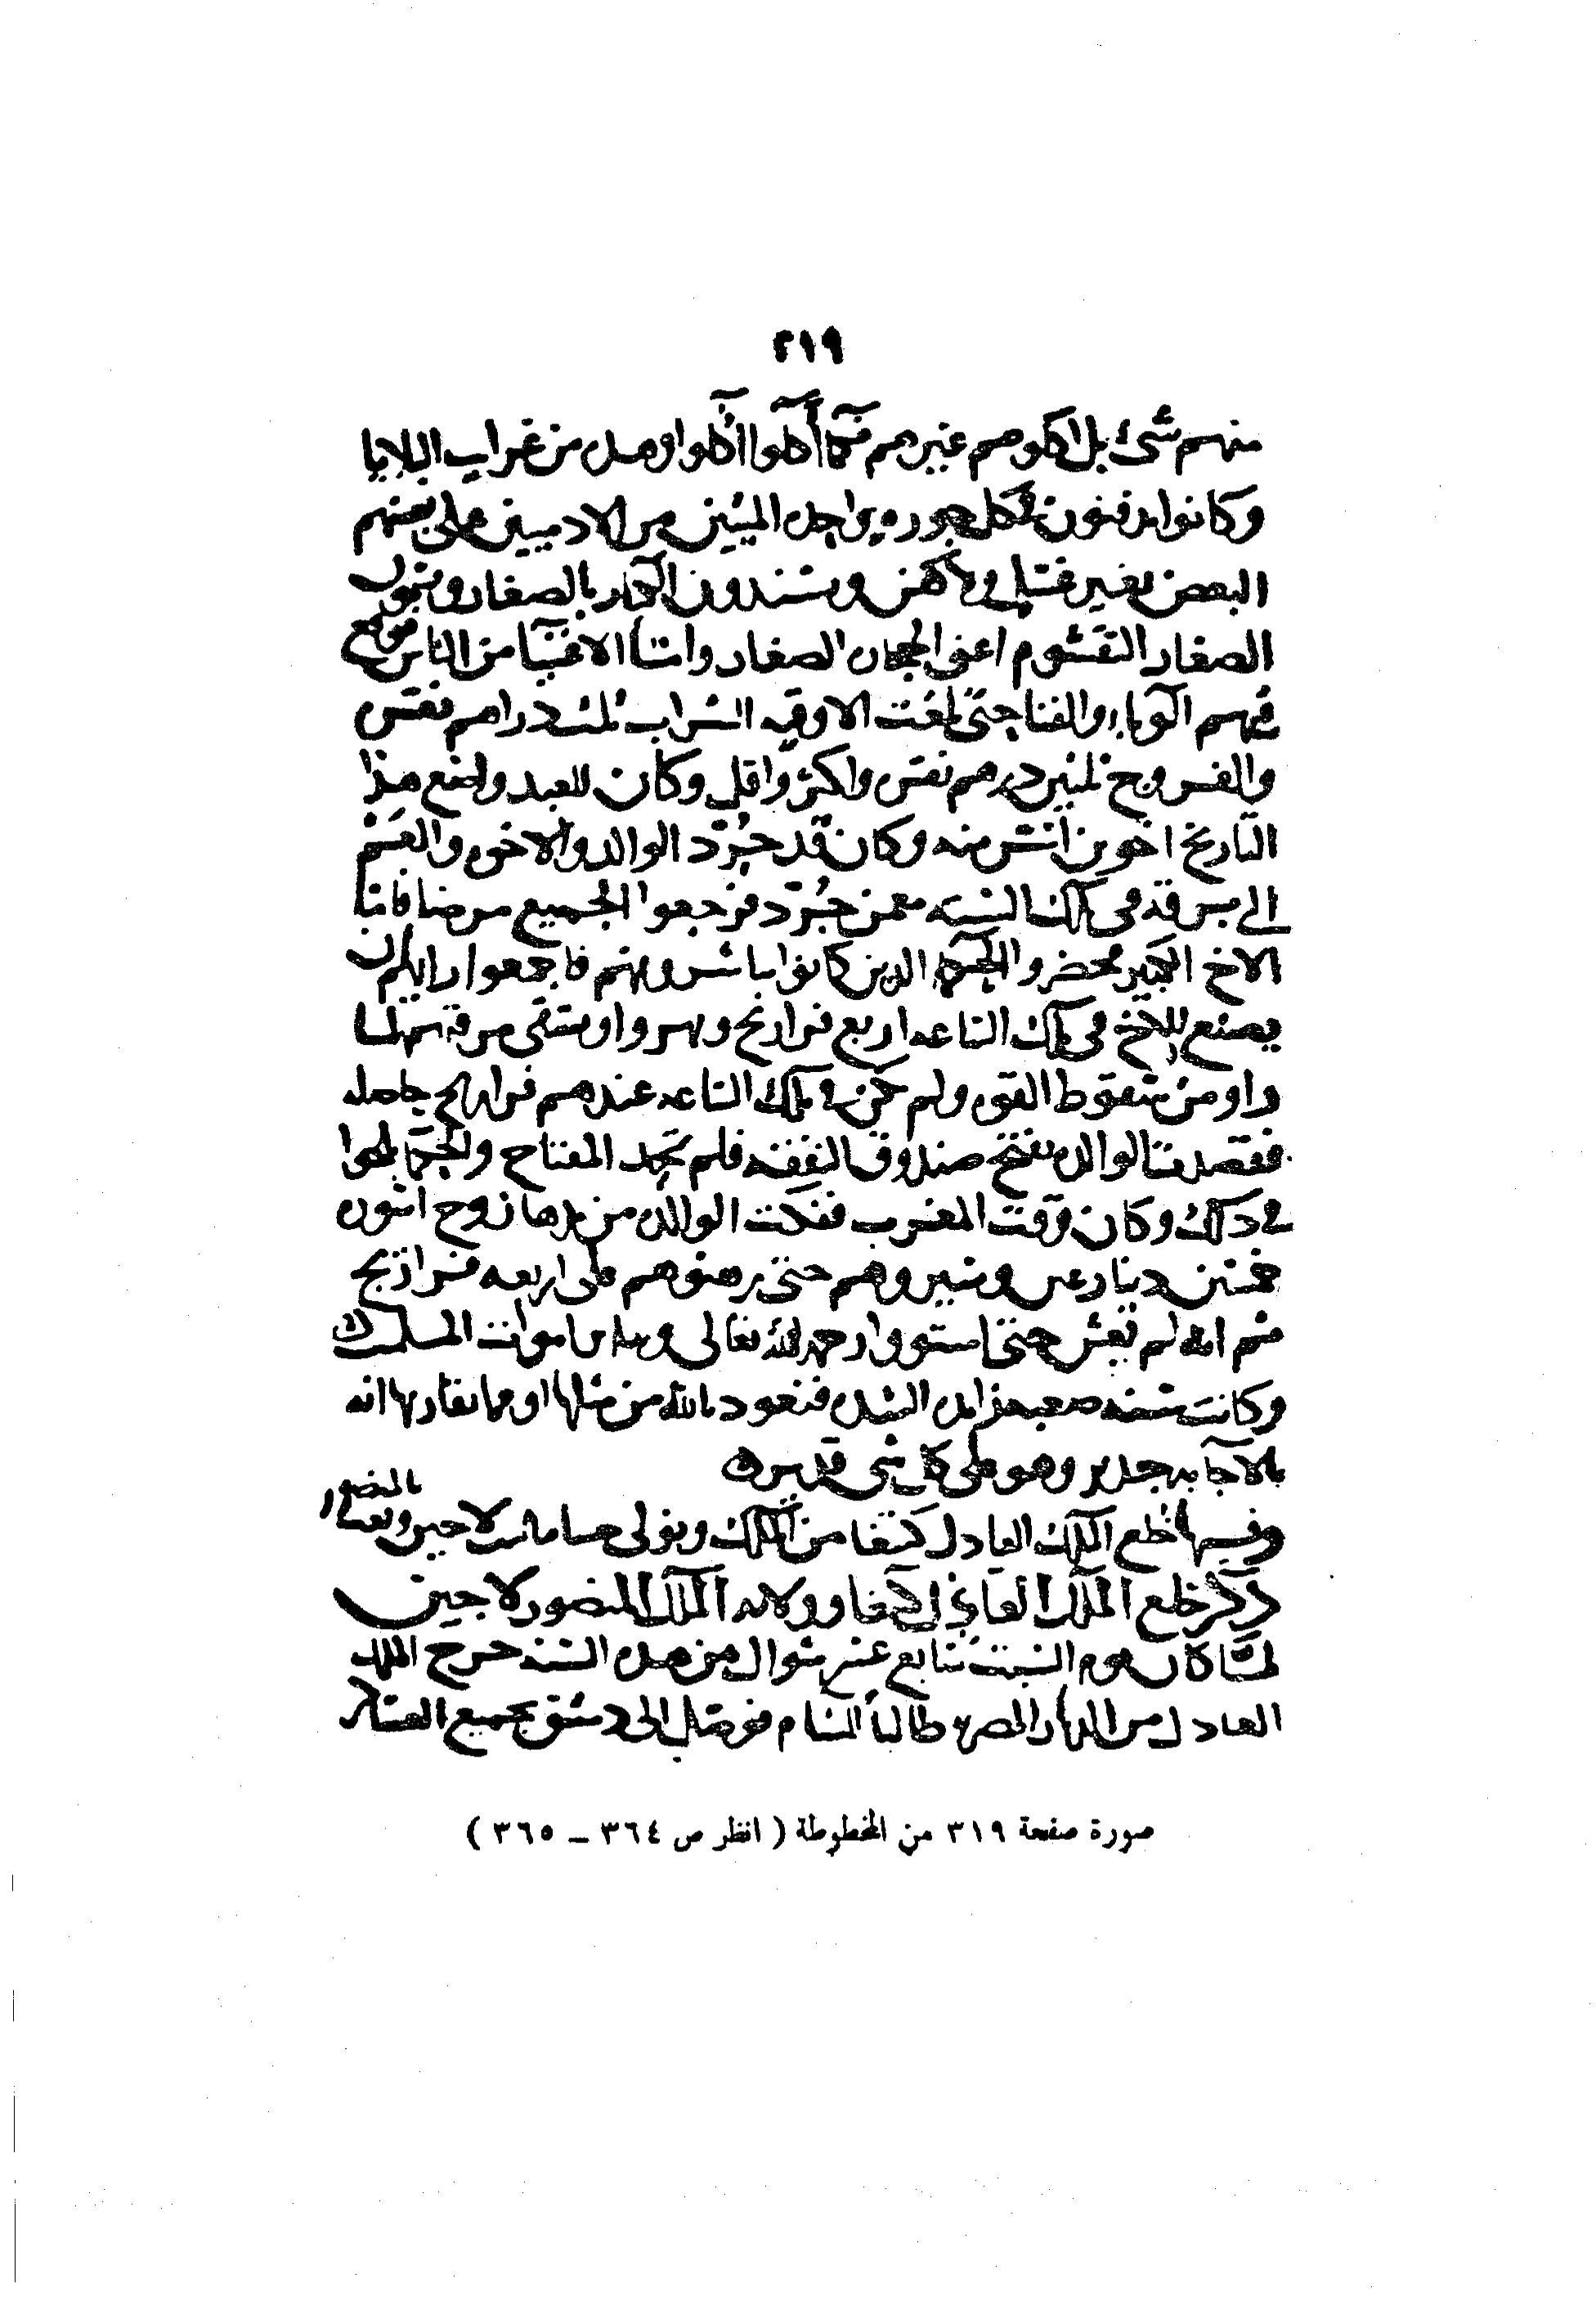 ٣١٩
منهم شئ بل اكلوهم غيرهم فكما أكلوا اُكلوا وهده من غرايب البلايا
وكانوا يدفنون في كل جوره يواجد الميتين من الادميين على بعضهم
البعض بغير غسل ولا كفن ويسندون الكبار بالصغار
الصغار التقشوم اعنى الحجار الصغار واما الاغنيا من الناس فوقع
فيهم الوبا والفنا حتى بلغت الاوقيه الشراب ثلثه دراهم نقس
والفروج ثلثين درهم نقس واكثر واقل وكان للعبد واضع هذا
التاريخ اخوين انتش منه وكان قد جرد الوالد والاخوين والغشم
الى برقه في تلك السنه معمن جرد فرجعوا الجميع مرضا فاما
الاخ الكبير فحضروا الحكما الدين كانوا يباشرونهم فاجمعوا رايهم ان
يصنع للاخ في تلك الساعه اربع فراريج ويهروا ويسقى مرقتهم لما
راو من سقوط القوى ولم تكن في تلك الساعه عندهم فراريج حاصله
فقصدت الوالده تفتح صندوق النفقه فلم تجد المفتاح والحكما لحوا
في ذلك وكان وقت المغرب ففكت الوالده من يدها زوج اسوره
خمسين دينار عين وسيروهم حتى رهنوهم على اربعه فراريج
ثم انه لم يعش حتى استووا رحمه الله تعالى وساير اموات المسلمين
وكانت سنه صعبه زايده الشده فنعود بالله من مثلها او مما يقاربها انه
بالاجابه جدير وهو على كل شى قدير
وفيها خلع الملك العادل كتبغا من الملك وتولى حسام الدين لاجين ونعت بالمنصور
ذكر خلع الملك العادل كتبغا وولايه الملك المنصور لاجين
لما كان يوم السبت سابع عشر شوال من هده السنه خرج الملك
العادل من الديار المصريه طالباً الشام فوصل الى دمشق بجميع العساكر
صورة صفحة ٣١٩ من المخطوطة ( انظر ص ٣٦٤ – ٣٦٥ )